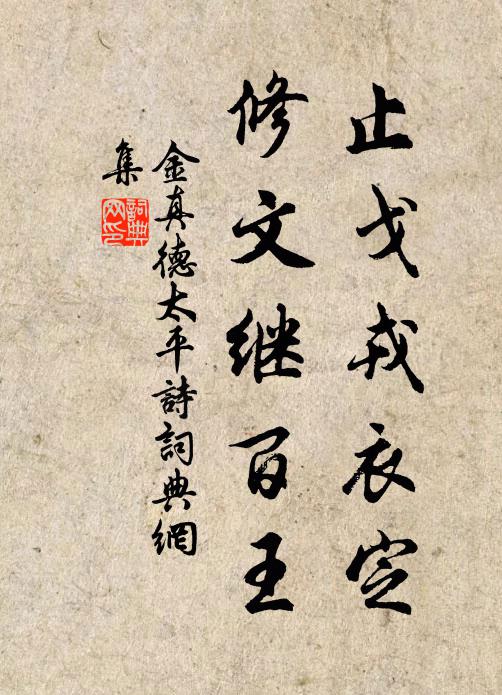 止戈戎衣定
修文继百王
金真德太平詩詞典網
集
詞典
网印